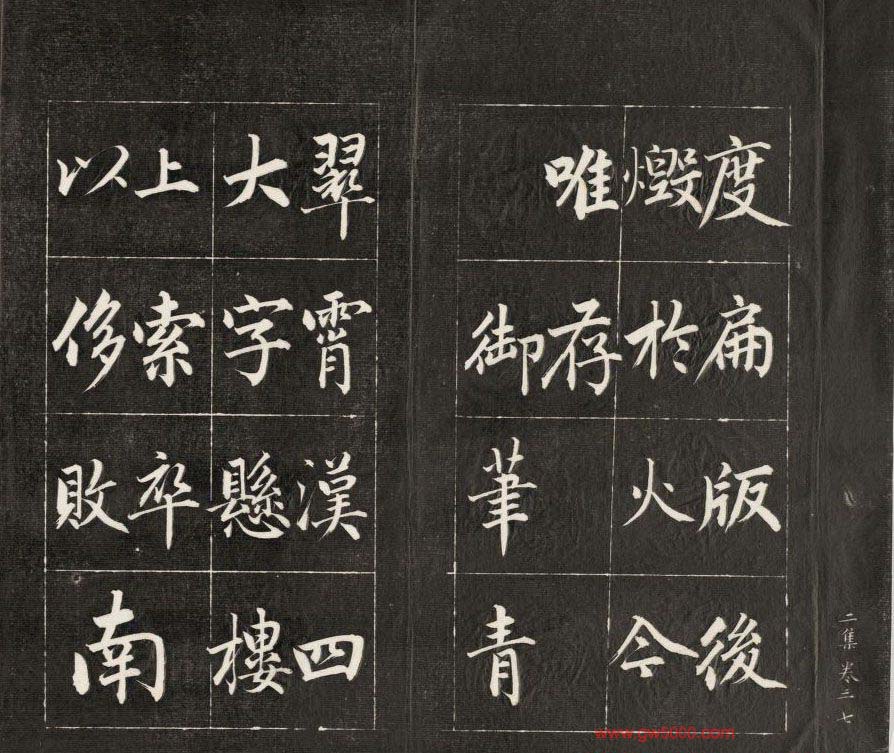 度扁版後
燬於火今
唯存
御筆青
翠霄漢四
大字懸樓
上索卒
以侈敗南
二集 卷三 七